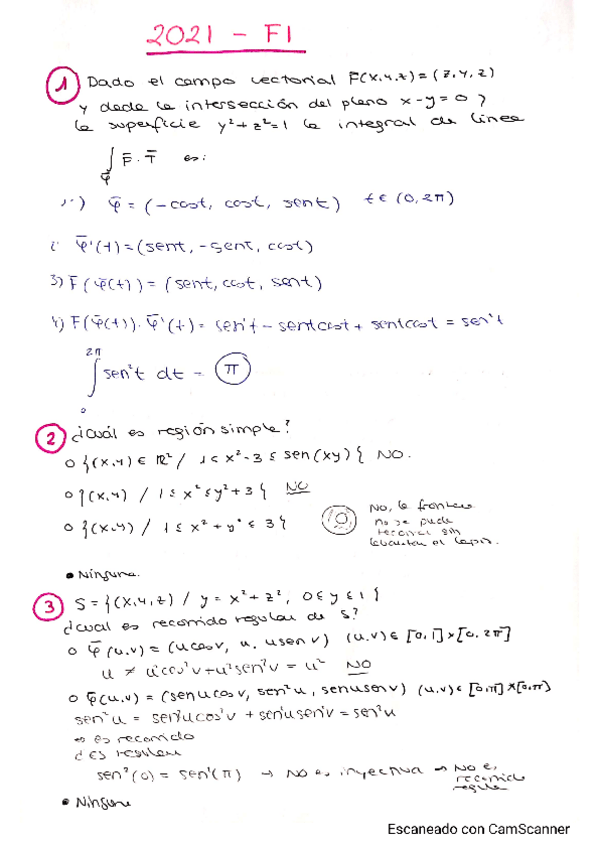 2021 - F1
1 Dado el campo vectorial F̄(x,y,z)=(z,y,z)
y dada la intersección del plano x-y=0 y
la superficie y²+z²=1 la integral de línea
∫φ̄ F̄·T̄ es:
1) φ̄ = (-cost, cost, sent) t∈(0,2π)
φ̄'(t)=(sent, -sent, cost)
3) F̄(φ̄(t)) = (sent, cost, sent)
4) F̄(φ̄(t))·φ̄'(t) = sen²t - sentcost + sentcost = sen²t
∫₀^2π sen²t dt = π
2 ¿Cuál es región simple?
o {(x,y) ∈ ℝ² / 1 ≤ x²-3 ≤ sen(xy)} NO.
o {(x,y) / 1 ≤ x² ≤ y²+3} NO
o {(x,y) / 1 ≤ x²+y² ≤ 3} No, la frontera
no se puede
recorrer sin
levantar el lapiz.
• Ninguna.
3 S = {(x,y,z) / y = x²+z², 0≤y≤1}
¿cual es recorrido regular de S?
o φ̄(u,v) = (ucosv, u, usenv) (u,v)∈ [0,1]×[0,2π]
u ≠ u²cos²v+u²sen²v = u² NO
o φ̄(u,v) = (senucosv, sen²u, senusenv) (u,v)∈ [0,π]×[0,π]
sen²u = sen²ucos²v + sen²usen²v = sen²u
⇒ es recorrido
¿ES regular
sen²(0) = sen²(π) → NO es inyectiva → NO es
recorrido
regular
• Ninguna
Escaneado con CamScanner